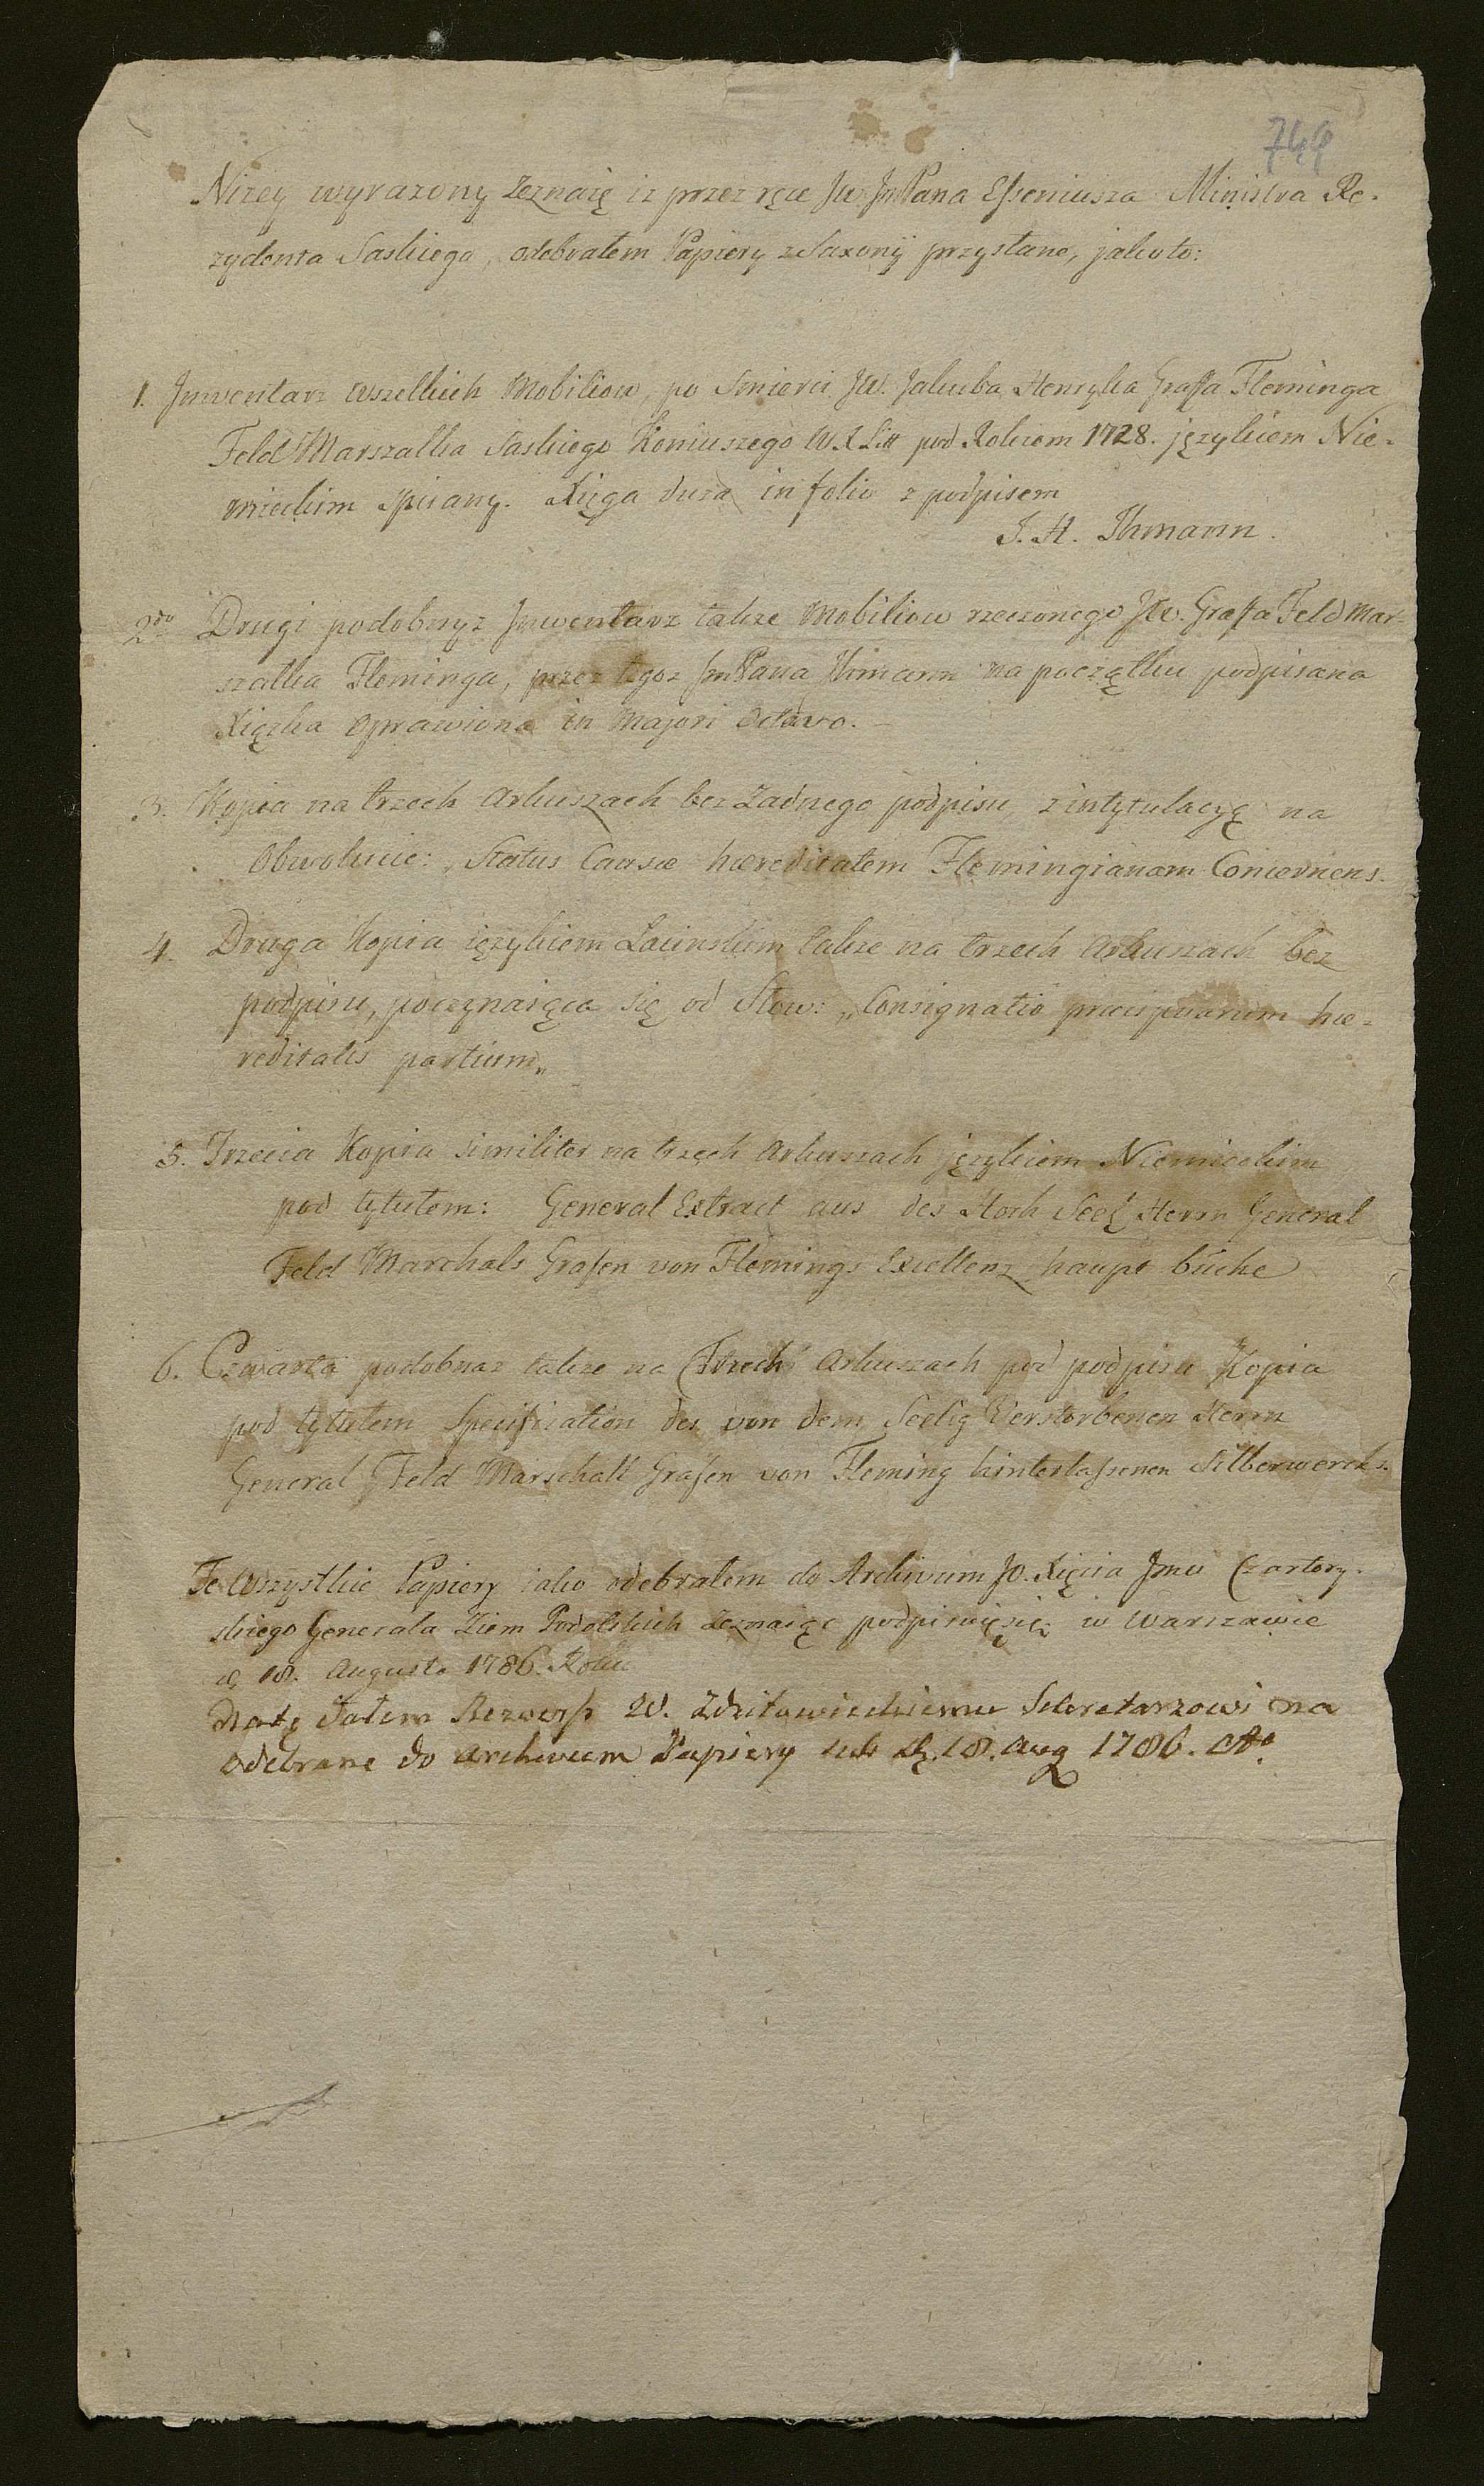 744
Niżey wyrażony zeznaię iż przez ręce JW JmPana Esseniusza Ministra Re-
zydenta Saskiego, odebrałem Papiery z Saxonij przysłane, jakoto:
1. Jnwentarz wszelkich Mobiliow, po Smierci JW. Jakuba Henryka Graffa Fleminga
Feld Marszałka Saskiego Koniuszego W.X Litt pod Rokiem 1728. językiem Nie-
mieckim spisany. Xięga duża in folio z podpisem
J. H. Ihmann.
2do Drugi podobnyż Jnwentarz także Mobiliow rzeczonego JW. Graffa Feld Mar-
szałka Fleminga, przez tegoż JmPana Ihmann na początku podpisana
Xiążka oprawiona in Majori Octavo. -
3. Kopia na trzech Arkuszach bez żadnego podpisu, z intytulacyą na
Obwolucie: Status Causæ hæreditatem Flemingianam Concernens.
4. Druga Kopia ięzykiem Łacinskim także na trzech Arkuszach bez
podpisu, poczynaiąca się od Słow: „Consignatio præcipuarum hæ-
reditatis partium„
5. Trzecia Kopia similiter na trzech Arkuszach językiem Niemieckim
pod tytułem: General Extract aus des Hoch Seel Herrn General
Feld Marchals Grafen von Flemings Excellenz haupt büche
6. Czwarta podobnaż także na Trzech Arkuszach pod podpisu Kopia
pod tytułem Specification der von dem Seelig Verstorbenen Herrn
General Feld Marschall Grafen von Fleming hinterlaßenen Silberwercks.
Te Wszystkie Papiery iako odebrałem do Archivum JO. Xięcia Jmci Czartory-
skiego Generała Ziem Podolskich zeznaiąc podpisuię się w Warszawie
d. 18. Augusta 1786. Roku
Na tę Dałem Rewersz W. Zdzitowieckiemu Sekretarzowi na
odebrane do Archivum Papiery sub d. 18. Aug 1786.